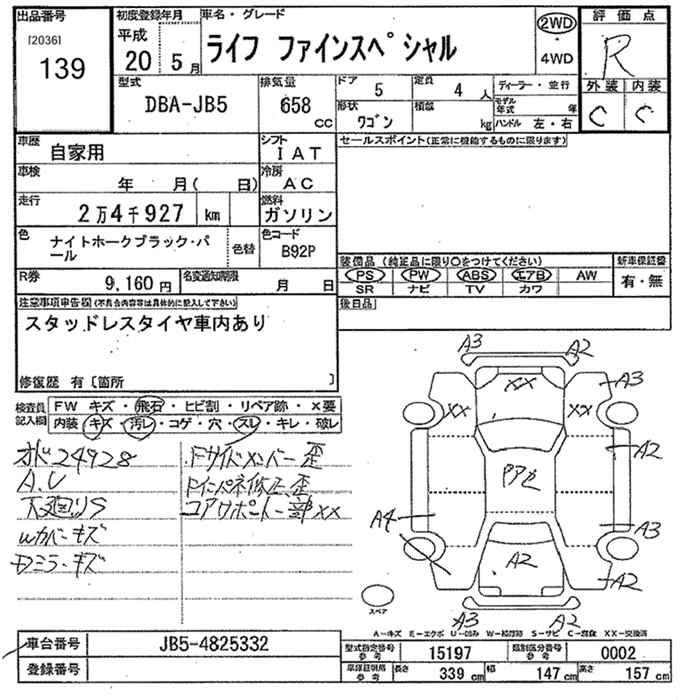 出品番号
[2036]
139
初度登録年月
平成
20 5月
車名・グレード
ライフ ファインスペシャル
2WD
4WD
評価点
R
外装 内装
C C
型式
DBA-JB5
排気量
658
CC
ドア
5
定員
4 人
ディーラー・並行
形状
ワゴン
積載
kg
モデル年式 年
ハンドル 左・右
車歴
自家用
シフト
IAT
セールスポイント(正常に機能するものに限ります)
車検
年 月( 日)
冷房
AC
走行
2万4千927 km
燃料
ガソリン
色
ナイトホークブラック・パール
色替
色コード
B92P
装備品 (純正品に限り○をつけてください)
PS PW ABS エアB AW
SR ナビ TV カワ
新車保証書
有・無
R券
9,160円
名変通知期限
月 日
後日品
注意事項申告欄(不具合内容等は具体的に記入して下さい)
スタッドレスタイヤ車内あり
修復歴 有〔箇所 〕
検査員記入欄
FW キズ・飛石・ヒビ割・リペア跡・×要
内装 キズ・汚レ・コゲ・穴・スレ・キレ・破レ
オド24928
A.U
下廻りS
Wカバーキズ
Dミラーキズ
Fサイドメンバー歪
Fインパネ修正、歪
コアサポート一部XX
A3
A2
A3
XX
XX
XX
A2
A4
A3
A2
A2
A3
A2
スペア
A-キズ E-エクボ U-凹み W-補修跡 S-サビ C-腐食 XX-交換済
車台番号
JB5-4825332
登録番号
型式指定番号 参考
15197
類別区分番号 参考
0002
車庫証明用 参考
長さ 339 cm
幅 147 cm
高さ 157 cm